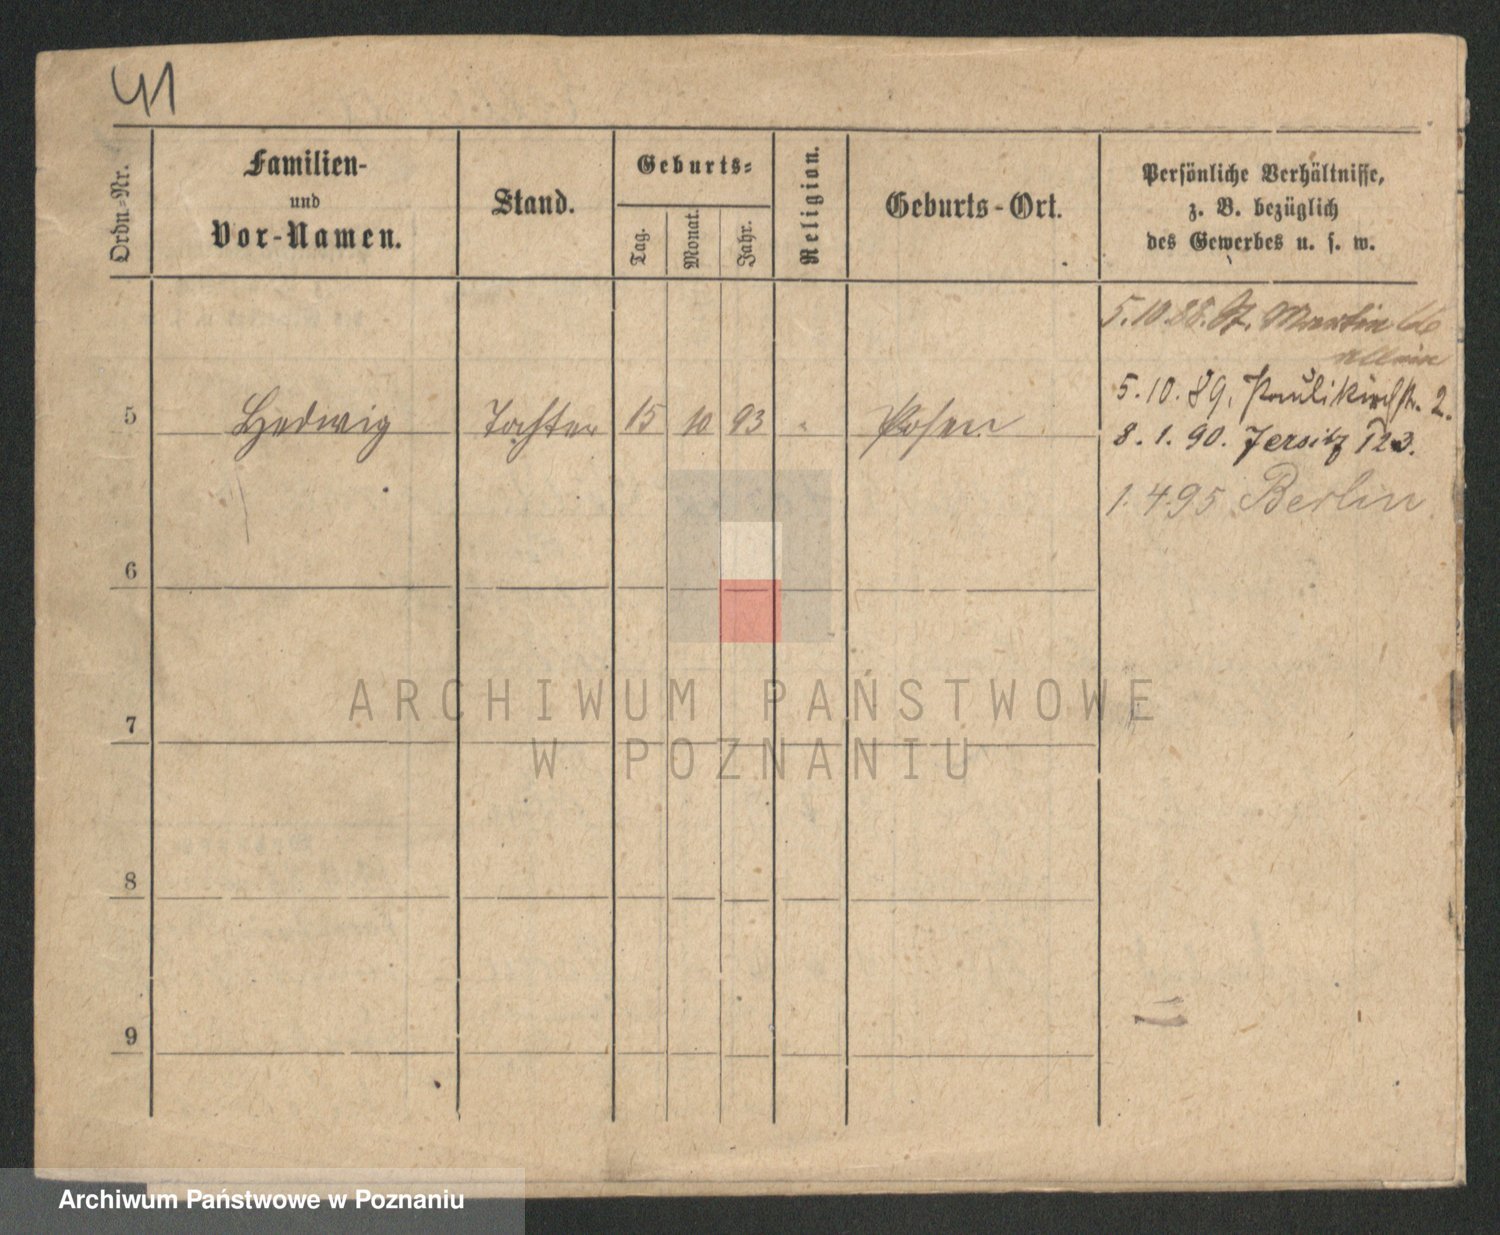 41
Ordn.-Nr.
Familien-
und
Vor-Namen.
Stand.
Geburts-
Tag.
Monat.
Jahr.
Religion.
Geburts-Ort.
Persönliche Verhältnisse,
z. B. bezüglich
des Gewerbes u. s. w.
5.10.88. St. Martin 66
5.10.89, Paulikirchstr. 2.
5 Hedwig Tochter 15 10 93 Posen
8.1.90. Jersitz 123.
1.4.95 Berlin
6
ARCHIWUM PAŃSTWOWE
7
W POZNANIU
8
9
Archiwum Państwowe w Poznaniu